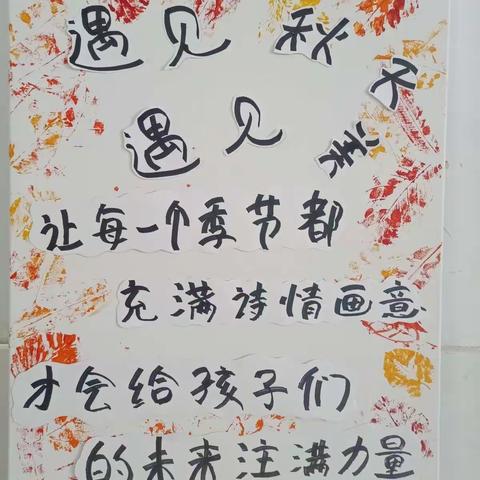 遇见秋天
遇见美
让每一个季节都
充满诗情画意
才会给孩子们
的未来注满力量